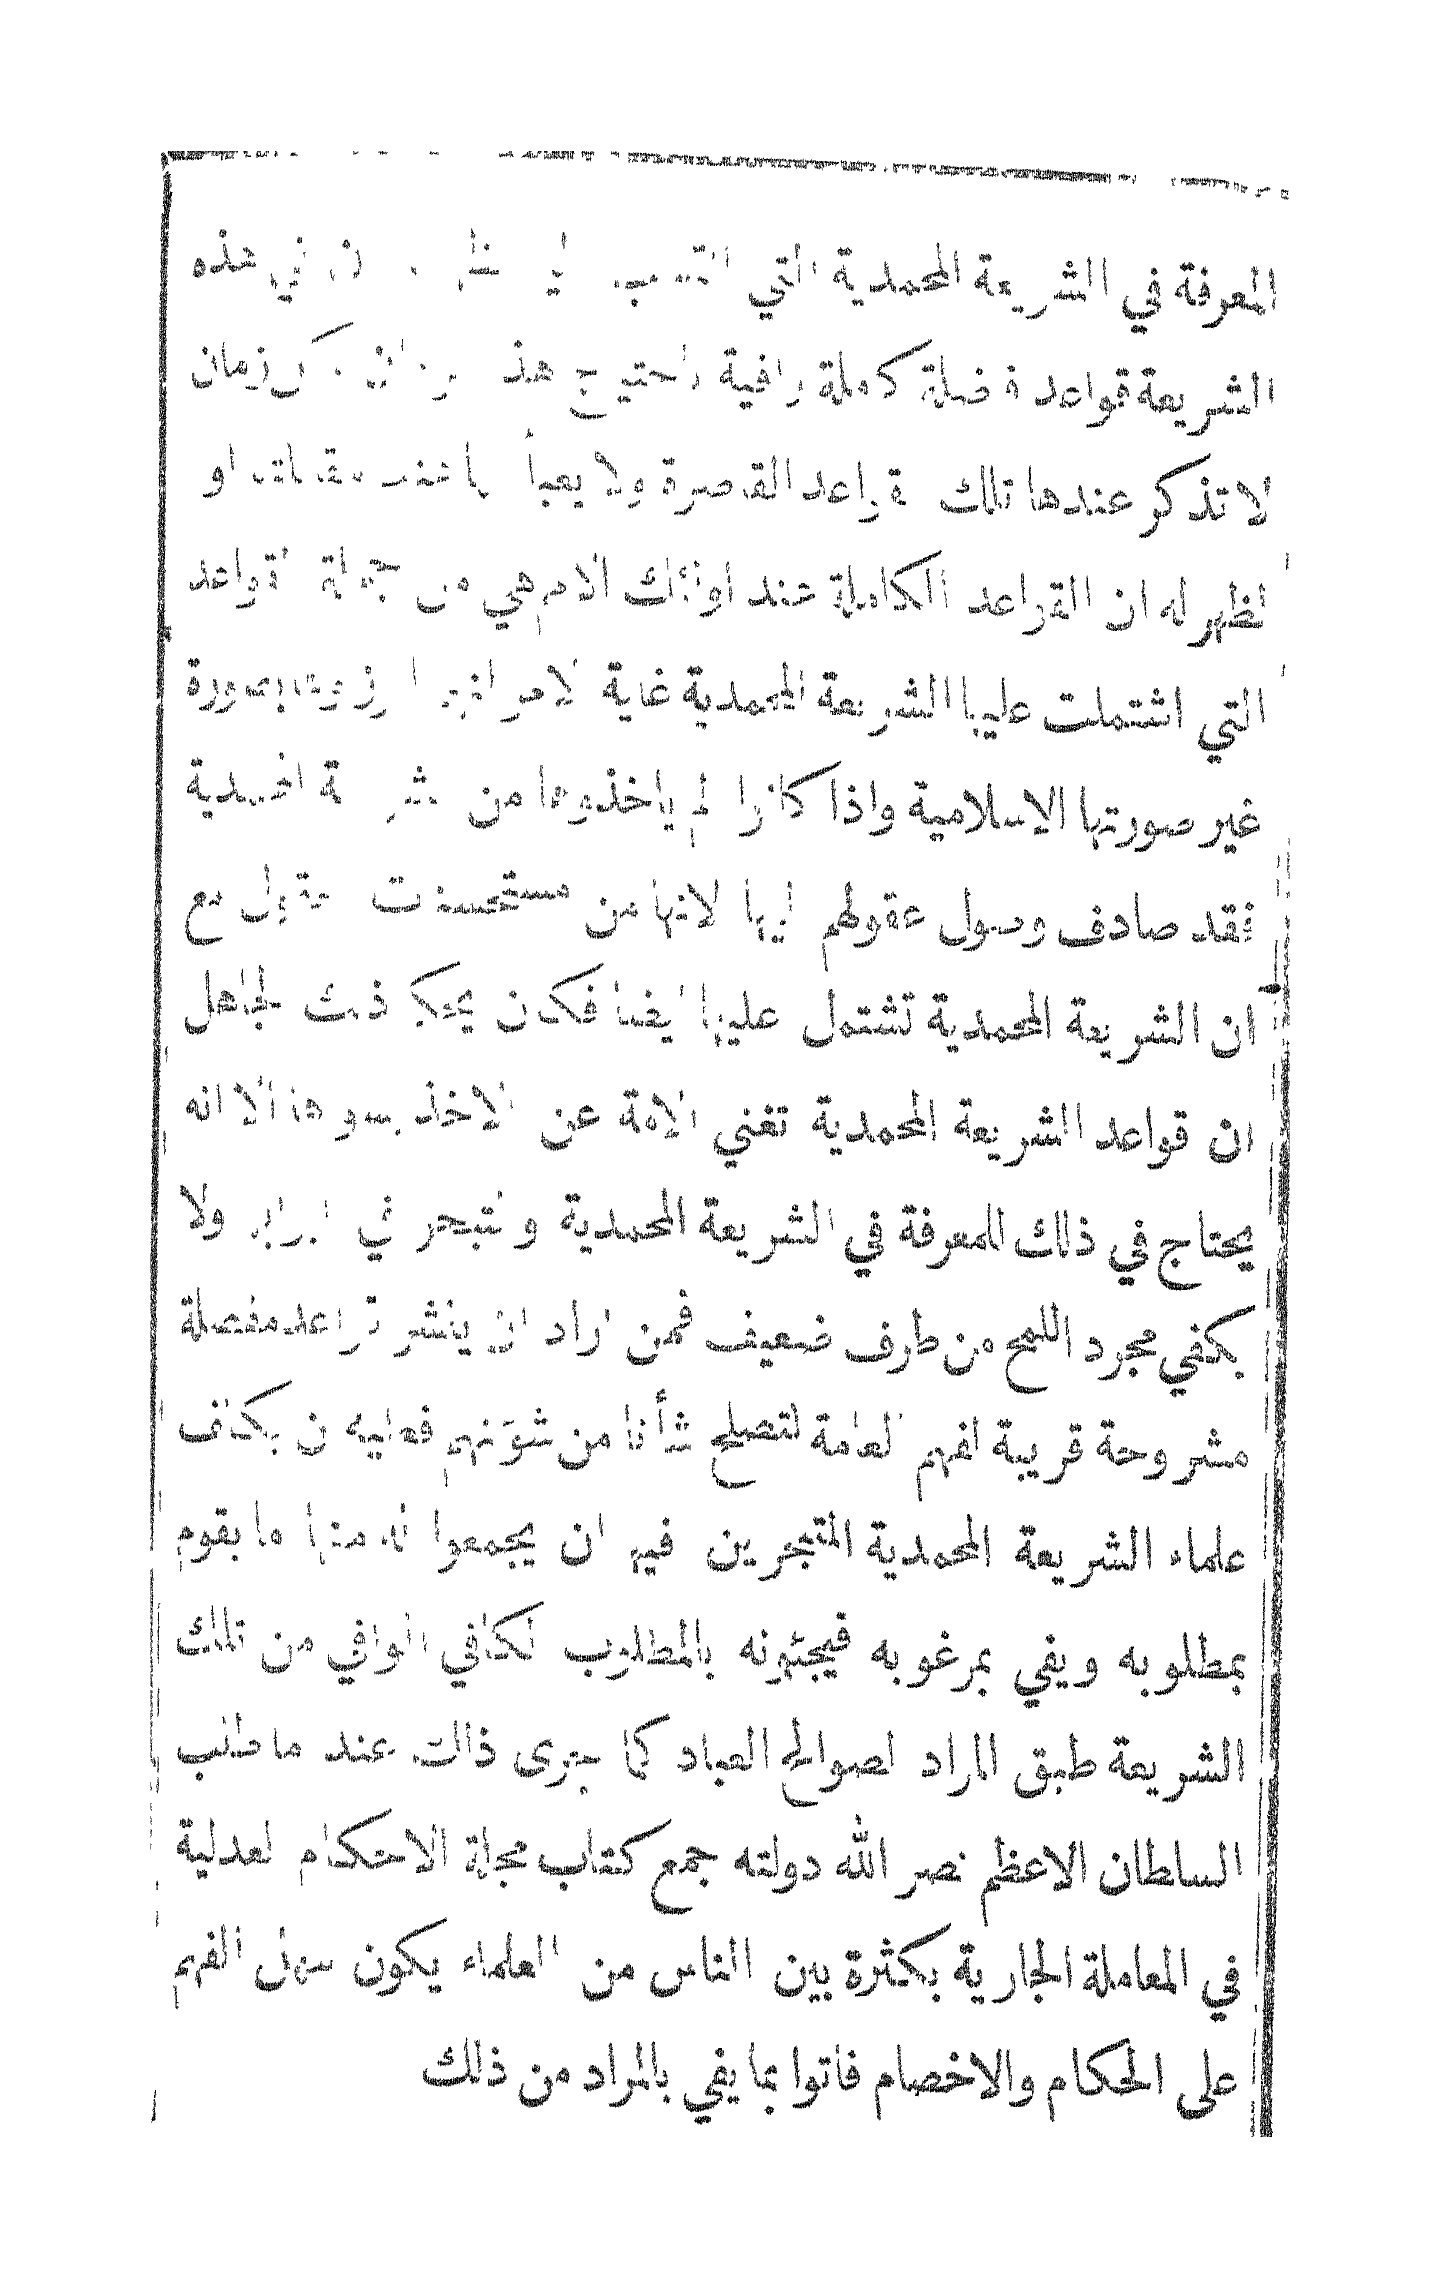 المعرفة في الشريعة المحمدية التي في هذه
الشريعة قواعد فاضلة كاملة وافية زمان
لا تذكر عندها تلك القواعد القاصرة ولا يعبأ او
لظهر له ان القواعد الكاملة عند اولئك الامم هي من جملة القواعد
التي اشتملت عليها الشريعة المحمدية غاية الامر بصورة
غير صورتها الاسلامية واذا كانوا لم ياخذوها من
فقد صادف وصول عقولهم اليها لانها من مستحسنات مع
ان الشريعة المحمدية تشتمل عليها ايضا فكان
ان قواعد الشريعة المحمدية تغني الامة عن الاخذ بسواها الا انه
يحتاج في ذلك للمعرفة في الشريعة المحمدية والتبحر في ولا
يكفي مجرد اللمح من طرف ضعيف فمن اراد ان ينشر قواعد مفصلة
مشروحة قريبة لفهم العامة لتصلح شأنا من شؤنهم فعليه ان يكلف
علماء الشريعة المحمدية المتبحرين فيها ان يجمعوا له منها ما يقوم
بمطلوبه ويفي بمرغوبه فيجئونه بالمطلوب الكافي الوافي من تلك
الشريعة طبق المراد لصوالح العباد كما جرى ذلك عند ما طلب
السلطان الاعظم نصر الله دولته جمع كتاب مجلة الاحكام العدلية
في المعاملة الجارية بكثرة بين الناس من العلماء يكون سهل الفهم
على الحكام والاخصام فاتوا بما يفي بالمراد من ذلك